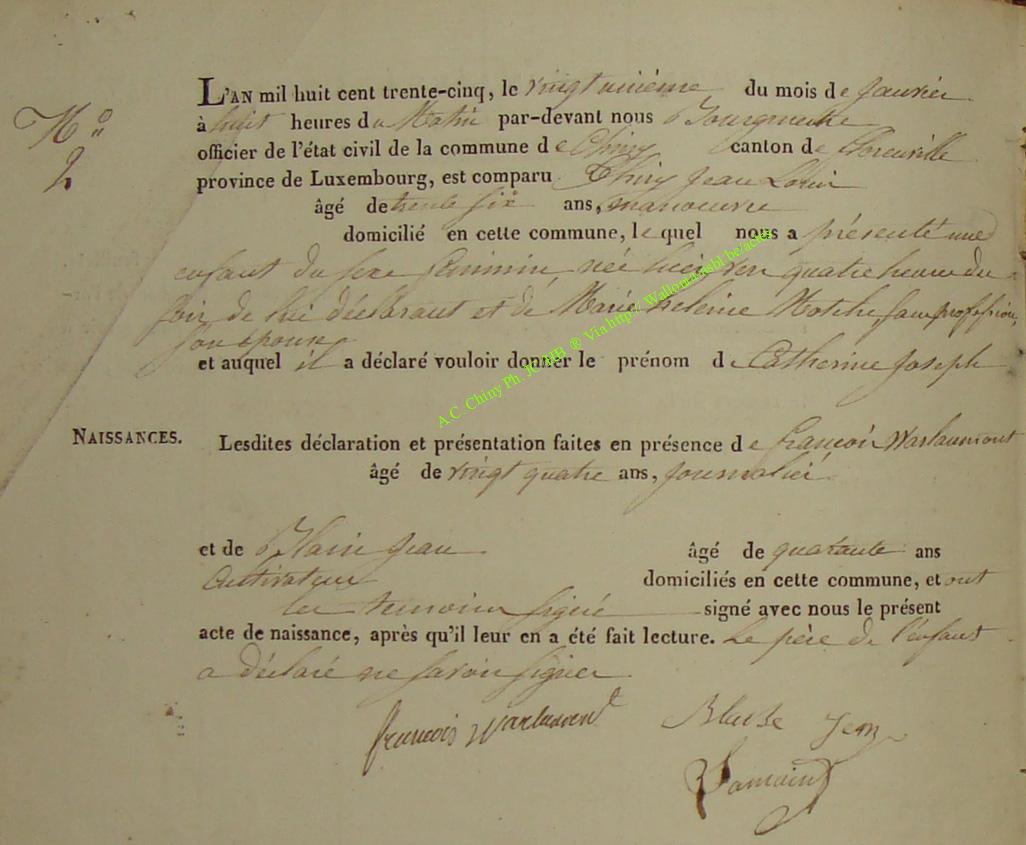 N°
2
L'AN mil huit cent trente-cinq, le vingt unième du mois de Janvier
à huit heures du Matin par-devant nous
officier de l'état civil de la commune de Chiny canton de florenville
province de Luxembourg, est comparu Thiry Jean Louis
âgé de trente six ans, manoeuvre
domicilié en cette commune, lequel nous a présenté une
enfant du sexe féminin née hier vers quatre heures du
soir de lui déclarant et de Marie helenne sans profession,
son épouse
et auquel il a déclaré vouloir donner le prénom de Catherine Joseph
NAISSANCES.
Lesdites déclaration et présentation faites en présence de françois Warlaumont
âgé de vingt quatre ans, journalier
et de Jean âgé de quarante ans
Cultivateur domiciliés en cette commune, et ont
les temoins signé signé avec nous le présent
acte de naissance, après qu'il leur en a été fait lecture. Le père de l'enfant
a déclaré ne savoir signer
françois Warlaumont Jean
A.C. Chiny Ph. JCMB ® Via http://Wallonia.asbl.be/actes